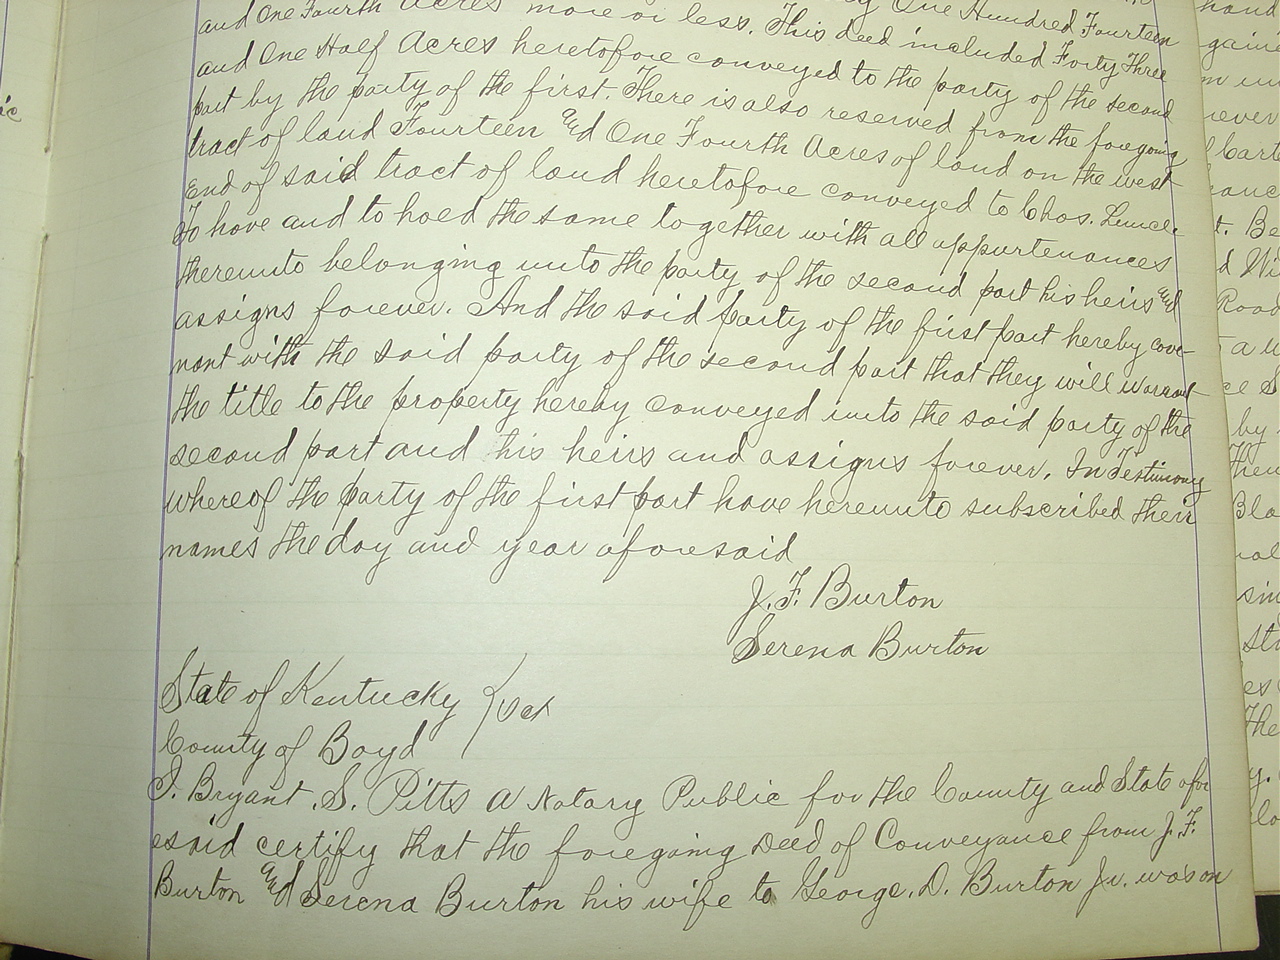 and One Fourth Acres more or less. This deed included Forty Three
and One Half Acres heretofore conveyed to the party of the second
part by the party of the first. There is also reserved from the foregoing
tract of land Fourteen and One Fourth Acres of land on the west
End of said tract of land heretofore conveyed to Chas.
To have and to hold the same together with all appurtenances
thereunto belonging unto the party of the second part his heirs and
assigns forever. And the said party of the first part hereby cove-
nant with the said party of the second part that they will warrant
the title to the property hereby conveyed unto the said party of the
second part and his heirs and assigns forever. In Testimony
whereof the party of the first part have hereunto subscribed their
names the day and year aforesaid
J. F. Burton
Serena Burton
State of Kentucky
County of Boyd
I. Bryant. S. Pitts a Notary Public for the County and State afor
esaid certify that the foregoing Deed of Conveyance from J. F.
Burton and Serena Burton his wife to George. D. Burton Jr. was on